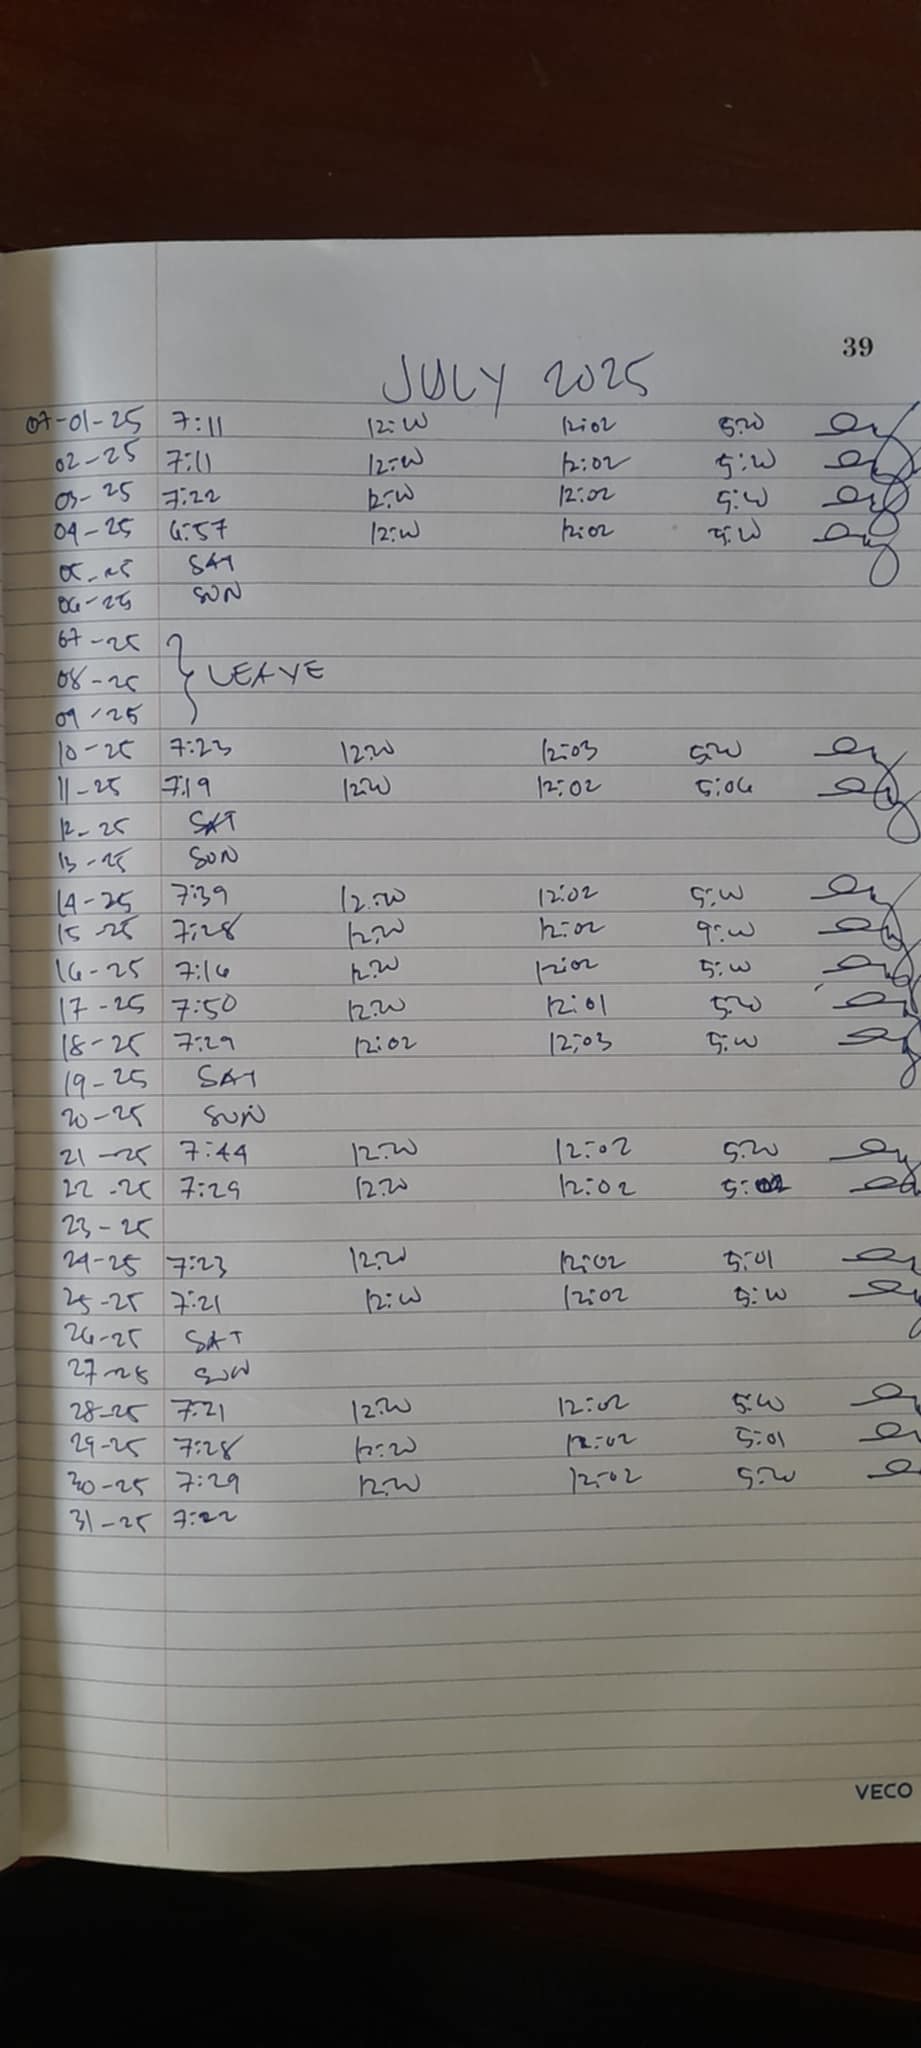 39
JULY 2025
07-01-25 7:11 12:00 12:02 5:00
02-25 7:11 12:00 12:02 5:00
03-25 7:22 12:00 12:02 5:00
04-25 6:57 12:00 12:02 5:00
05-25 SAT
06-25 SUN
07-25
08-25 LEAVE
09-25
10-25 7:23 12:00 12:03 5:00
11-25 7:19 12:00 12:02 5:06
12-25 SAT
13-25 SUN
14-25 7:39 12:00 12:02 5:00
15-25 7:28 12:00 12:02 5:00
16-25 7:16 12:00 12:02 5:00
17-25 7:50 12:00 12:01 5:00
18-25 7:29 12:02 12:03 5:00
19-25 SAT
20-25 SUN
21-25 7:44 12:00 12:02 5:00
22-25 7:29 12:00 12:02
23-25
24-25 7:23 12:00 12:02 5:01
25-25 7:21 12:00 12:02 5:00
26-25 SAT
27-25 SUN
28-25 7:21 12:00 12:02 5:00
29-25 7:28 12:00 12:02 5:01
30-25 7:29 12:00 12:02 5:00
31-25 7:22
VECO